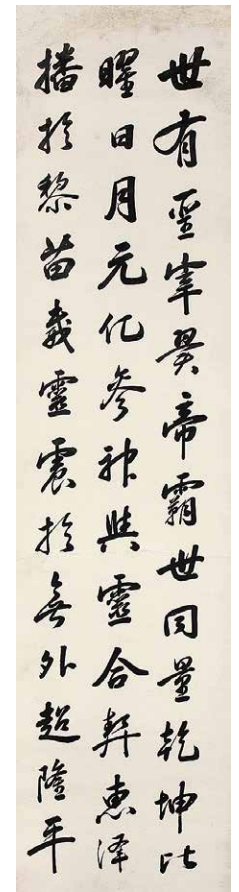 世有聖宰翼帝霸世同量乾坤比
曜日月元化參神與靈合契惠澤
播於黎苗威靈震於無外超隆平